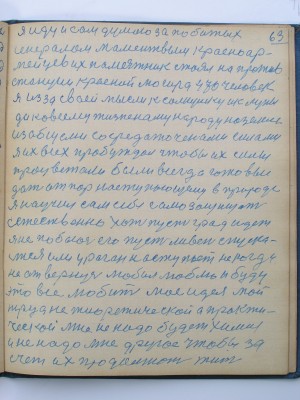 63
я иду и сам думаю за побитых
генералом Мамонтовым красноар-
мейцев их памятник стоял на против
станции красной могила 430 человек
я из за своей мысли к солнушку и с луни
дако всему жизненому народу на земле
сосредаточеными силами
я их всех пробуждаю чтобы их силы
процветали были всегда готовые
дат отпор наступающему в природе
я научил сам себя само защищат
естественно хот пуст град идет
я не побоюс его пуст ливен спуска-
тся или ураган наступает некогда
не отвернус любил люблю и буду
это все любит мое идея мой
труд не теоретический а практи-
ческой мне не надо будет химии
и не надо мне другое чтобы за
счет их продолжат жит